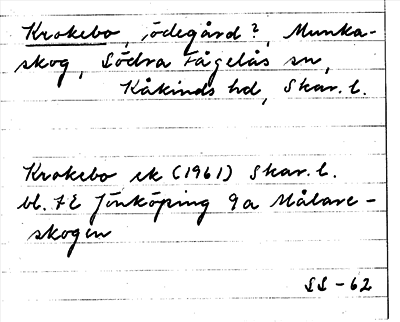 Krokebo, ödegård?, Munka-
skog, Södra Fågelås sn,
Kåkinds hd, Skar. l.
Krokebo ek (1961) Skar. l.
bl. 7E Jönköping 9a Målare-
skogen
SS-62